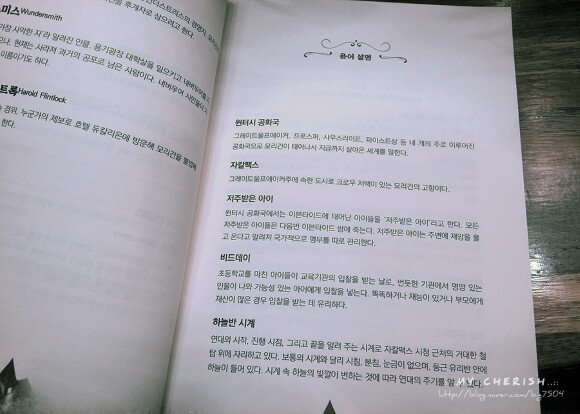 스미스Wundersmith
가장 사악한 자'라 알려진 인물. 용기광장 대학살을 일으키고 네버무어를
현재는 사라져 과거의 공포로 남은 사람이다. 네버무어 시민들이
이름이기도 하다.
트록Harold Flintlock
경위. 누군가의 제보로 호텔 듀칼리온에 방문해 모리건을 불법
한다.
용어 설명
윈터시 공화국
그레이트울프에이커, 프로스퍼, 사우스라이트, 파이스트상 등 네 개의 주로 이루어진
공화국으로 모리건이 태어나서 지금까지 살아온 세계를 말한다.
자칼팩스
그레이트울프에이커주에 속한 도시로 크로우 저택이 있는 모리건의 고향이다.
저주받은 아이
윈터시 공화국에서는 이븐타이드에 태어난 아이들을 '저주받은 아이'라고 한다. 모든
저주받은 아이들은 다음번 이븐타이드 밤에 죽는다. 저주받은 아이는 주변에 재앙을 몰
고 온다고 알려져 국가적으로 명부를 따로 관리한다.
비드데이
초등학교를 마친 아이들이 교육기관의 입찰을 받는 날로, 번듯한 기관에서 명망 있는
인물이 나와 가능성 있는 아이에게 입찰을 넣는다. 똑똑하거나 재능이 있거나 부모에게
재산이 많은 경우 입찰을 받는 데 유리하다.
하늘반 시계
연대의 시작, 진행 시점, 그리고 끝을 알려 주는 시계로 자칼팩스 시청 근처의 거대한 철
탑 위에 자리하고 있다. 보통의 시계와 달리 시침, 분침, 눈금이 없으며, 둥근 유리반 안에
하늘이 들어 있다. 시계 속 하늘의 빛깔이 변하는 것에 따라 연대의 주기를 알 수 있다.
MY CHERISH..::
http://blog.naver.com/bg7504